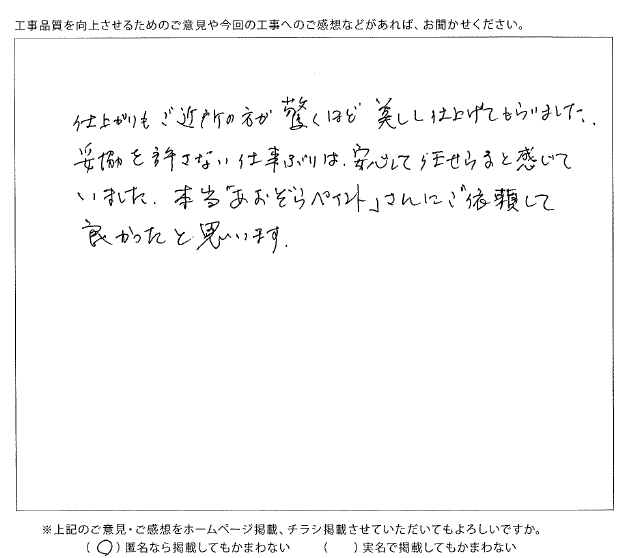 工事品質を向上させるためのご意見や今回の工事へのご感想などがあれば、お聞かせください。
仕上がりもご近所の方が驚くほど美しく仕上げてもらいました。
妥協を許さない仕事ぶりは、安心して任せらると感じて
いました。本当「あおぞらペイント」さんにご依頼して
良かったと思います。
※上記のご意見・ご感想をホームページ掲載、チラシ掲載させていただいてもよろしいですか。
(○)匿名なら掲載してもかまわない ( )実名で掲載してもかまわない